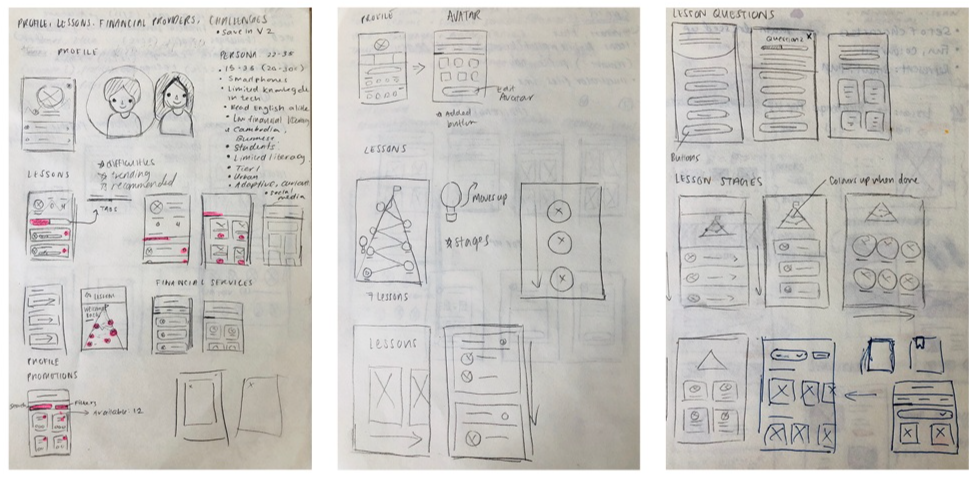 PROFILE, LESSONS, FINANCIAL PROVIDERS, CHALLENGES
• Save in V2
PROFILE
PERSONA 22-35
Smartphones
Limited knowledge
in tech
Read English
Low financial literacy
Cambodia,
Students
Limited literacy
Tier 1
Urban
Adaptive, curious
social
media
difficulties
trending
recommended
LESSONS
TABS
FINANCIAL SERVICES
PROFILE
PROMOTIONS
Search
Filters
Available: 12
PROFILE
AVATAR
Edit
Avatar
Added
button
LESSONS
Moves up
Stages
7 LESSONS
LESSONS
LESSON QUESTIONS
Question 2
X
Buttons
LESSON STAGES
Colours up when done